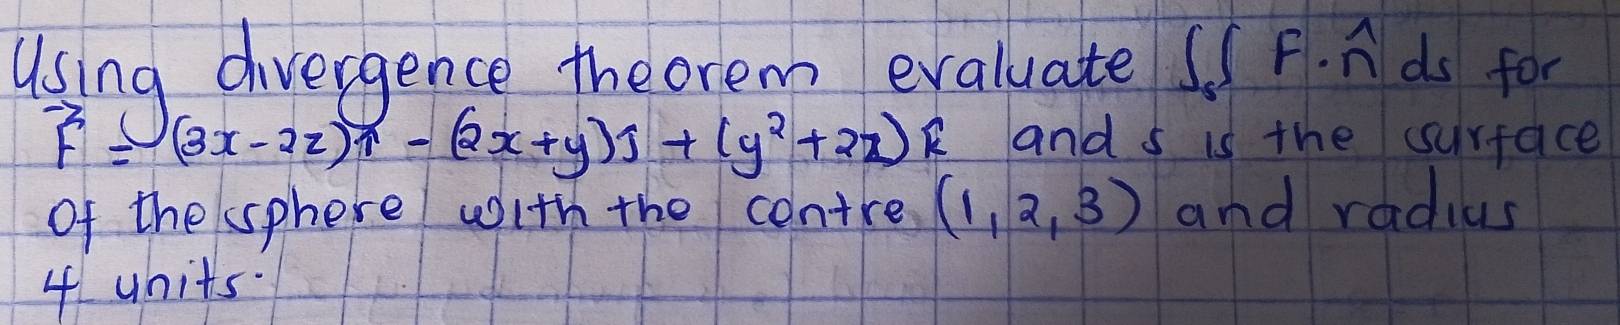 Using divergence theorem evaluate ∬ₛ F·n̂ ds for
F⃗ = (3x-2z)î - (2x+y)ĵ + (y²+2z)k̂ and s is the surface
of the sphere with the centre (1,2,3) and radius
4 units.